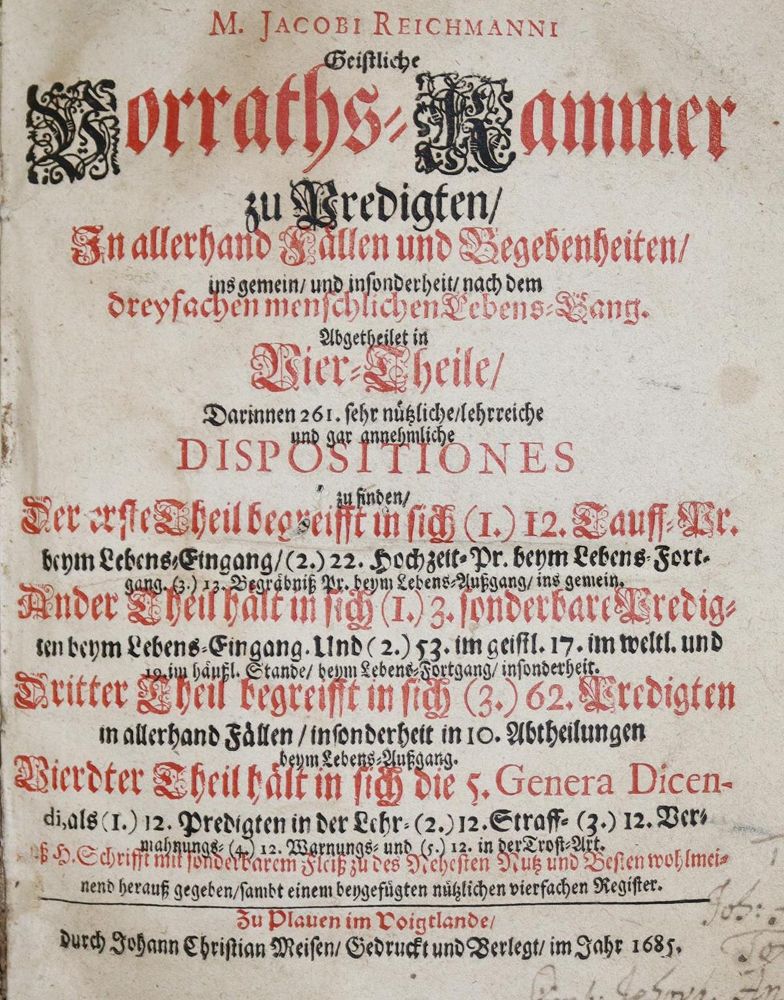 M. JACOBI REICHMANNI
Geistliche
Vorraths-Kammer
zu Predigten/
In allerhand Fällen und Begebenheiten/
ins gemein/ und insonderheit/ nach dem
dreyfachen menschlichen Lebens-Gang.
Abgetheilet in
Vier-Theile/
Darinnen 261. sehr nützliche/lehrreiche
und gar annehmliche
DISPOSITIONES
zu finden/
Der erste Theil begreifft in sich (1.) 12. Tauff-Pr.
beym Lebens-Eingang/ (2.) 22. Hochzeit-Pr. beym Lebens-Fort-
gang. (3.) 13. Begräbniß Pr. beym Lebens-Außgang/ ins gemein.
Ander Theil hält in sich (1.) 3. sonderbare Predig-
ten beym Lebens-Eingang. Und (2.) 53. im geistl. 17. im weltl. und
19. im häußl. Stande/ beym Lebens-Fortgang/ insonderheit.
Dritter Theil begreifft in sich (3.) 62. Predigten
in allerhand Fällen/ insonderheit in 10. Abtheilungen
beym Lebens-Außgang.
Vierdter Theil hält in sich die 5. Genera Dicen-
di, als (1.) 12. Predigten in der Lehr- (2.) 12. Straff- (3.) 12. Ver-
mahnungs- (4.) 12. Warnungs- und (5.) 12. in der Trost-Art.
H. Schrifft mit sonderbarem Fleiß zu des Nehesten Nutz und Besten wohlmei-
nend herauß gegeben/ sambt einem beygefügten nützlichen vierfachen Register.
Zu Plauen im Voigtlande/
durch Johann Christian Meisen/ Gedruckt und Verlegt/ im Jahr 1685.
Joh: